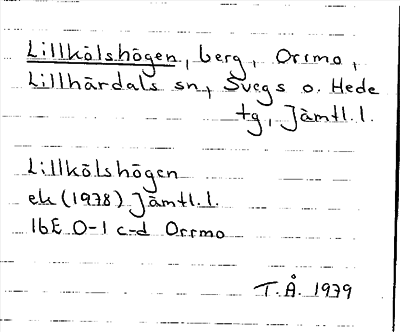 Lillkölshögen, berg, Orrmo,
Lillhärdals sn, Svegs o. Hede
tg, Jämtl.l.
Lillkölshögen
ek (1978) Jämtl.l.
16E 0-1 c-d Orrmo
T.Å. 1979